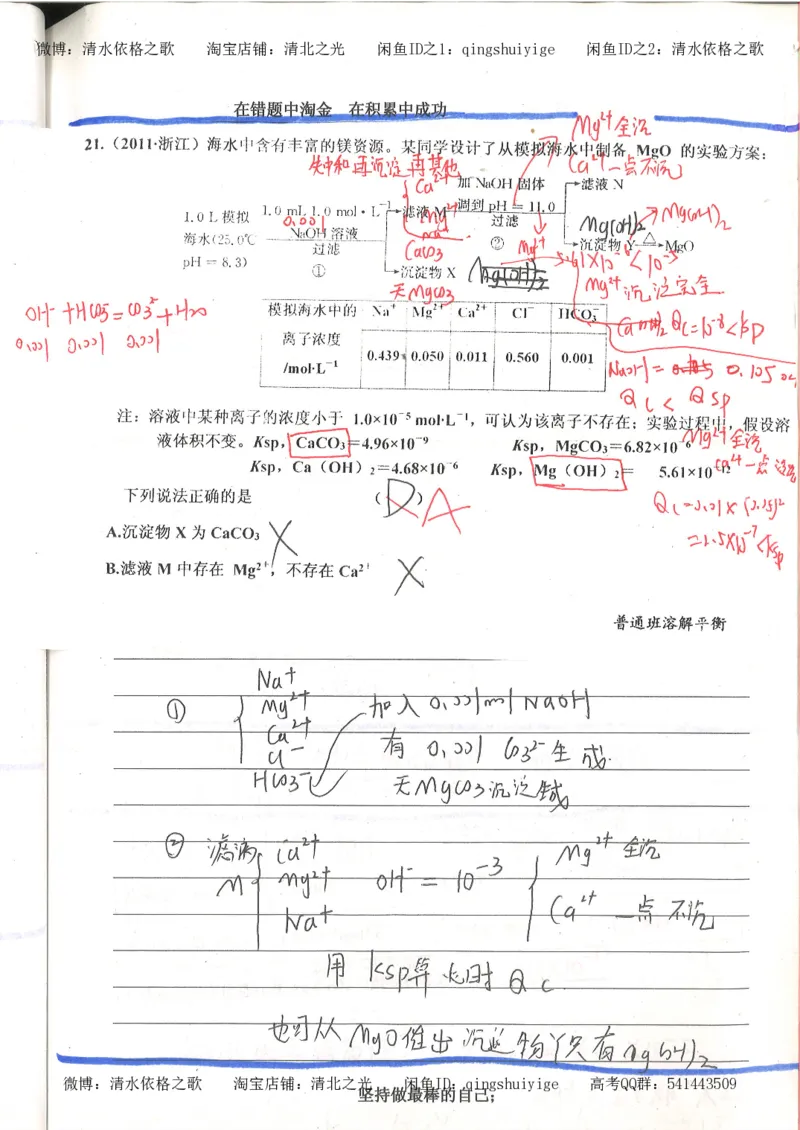 微博：清水依格之歌 淘宝店铺：清北之光 闲鱼ID之1：qingshuiyige 闲鱼ID之2：清水依格之歌
在错题中淘金 在积累中成功
Mg²⁺全沉
21.（2011·浙江）海水中含有丰富的镁资源。某同学设计了从模拟海水中制备 MgO 的实验方案：
Ca²⁺一点不沉
先中和再沉淀再其他
Ca²⁺
加 NaOH 固体
滤液 N
1.0 L 模拟 1.0 mL 1.0 mol·L⁻¹ 滤液 M 调到 pH = 11.0
0.001
Mg²⁺
Mg(OH)₂ Mg(OH)₂
海水(25.0℃ NaOH 溶液
Na⁺
过滤
pH = 8.3)
过滤
CaCO₃
② Mg²⁺
沉淀物 Y △ MgO
①
沉淀物 X
Mg(OH)₂
5.61×10⁻⁶<10⁻⁵
无MgCO₃
Mg²⁺沉淀完全
OH⁻+HCO₃⁻=CO₃²⁻+H₂O
0.001 0.001 0.001
模拟海水中的 Na⁺ Mg²⁺ Ca²⁺ Cl⁻ HCO₃⁻
离子浓度
/mol·L⁻¹ 0.439 0.050 0.011 0.560 0.001
Qc=10⁻⁸<Ksp
NaOH= 0.105
Qc < Qsp
注：溶液中某种离子的浓度小于 1.0×10⁻⁵ mol·L⁻¹，可认为该离子不存在；实验过程中，假设溶
液体积不变。Ksp，CaCO₃=4.96×10⁻⁹ Ksp，MgCO₃=6.82×10⁻⁶
Mg²⁺全沉
Ksp，Ca（OH）₂=4.68×10⁻⁶ Ksp，Mg（OH）₂= 5.61×10⁻¹²
Ca²⁺一点没沉
下列说法正确的是 （D） A
Qc=0.01×(0.05)²
A.沉淀物 X 为 CaCO₃ X
=2.5×10⁻⁷<Ksp
B.滤液 M 中存在 Mg²⁺，不存在 Ca²⁺ X
普通班溶解平衡
① Na⁺
Mg²⁺
Ca²⁺
Cl⁻
HCO₃⁻
加入 0.001mol NaOH
有 0.001 CO₃²⁻ 生成.
无MgCO₃沉淀生成
② 滤液M Ca²⁺
Mg²⁺
Na⁺
OH⁻ = 10⁻³
Mg²⁺ 全沉
Ca²⁺ 一点不沉
用 Ksp算 此时 Qc
也可从 MgO推出沉淀物Y只有Mg(OH)₂
微博：清水依格之歌 淘宝店铺：清北之光 闲鱼ID：qingshuiyige 高考QQ群：541443509
坚持做最棒的自己；